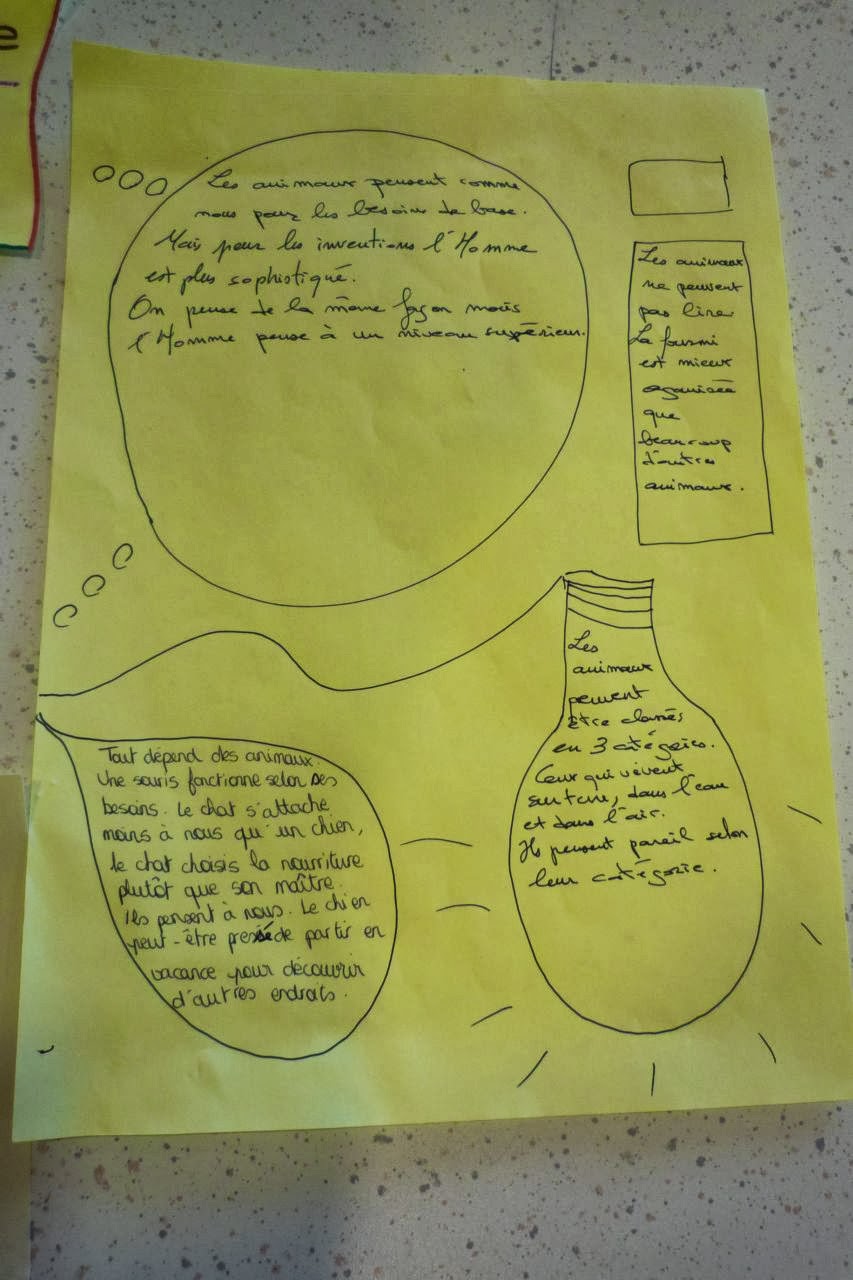 e
Les animaux pensent comme
nous pour les besoins de base.
Mais pour les inventions l'Homme
est plus sophistiqué.
On pense de la même façon mais
l'Homme pense à un niveau supérieur.
Les animaux
ne peuvent
pas lire.
La fourmi
est mieux
organisée
que
beaucoup
d'autres
animaux.
Les
animaux
peuvent
être classés
en 3 catégories.
Ceux qui vivent
sur terre, dans l'eau
et dans l'air.
Ils pensent pareil selon
leur catégorie.
Tout dépend des animaux.
Une souris fonctionne selon ses
besoins. Le chat s'attache
moins à nous qu'un chien,
le chat choisis la nourriture
plutôt que son maître.
Ils pensent à nous. Le chien
peut-être pressé de partir en
vacance pour découvrir
d'autres endroits.